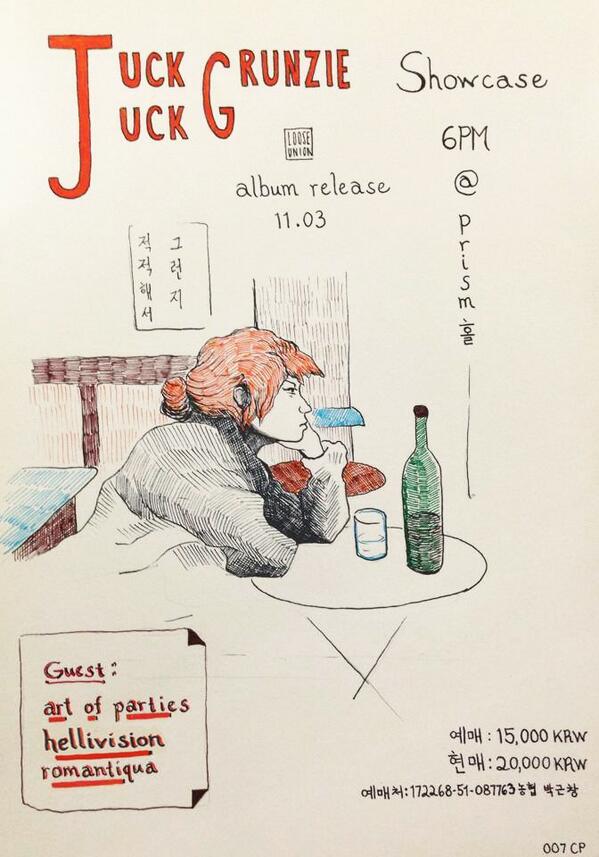 JUCK GRUNZIE
JUCK
Showcase
LOOSE
UNION
6PM
album release
@
11.03
prism홀
그런지
적적해서
Guest:
art of parties
hellivision
romantiqua
예매 : 15,000 KRW
현매 : 20,000 KRW
예매처:172268-51-087763 농협 박근창
007 CP